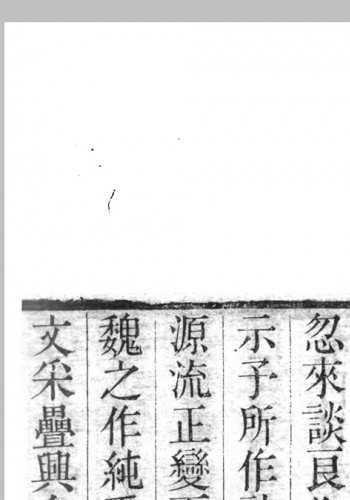 忽來談艮
示子所作
源流正變
魏之作純
文采疊興